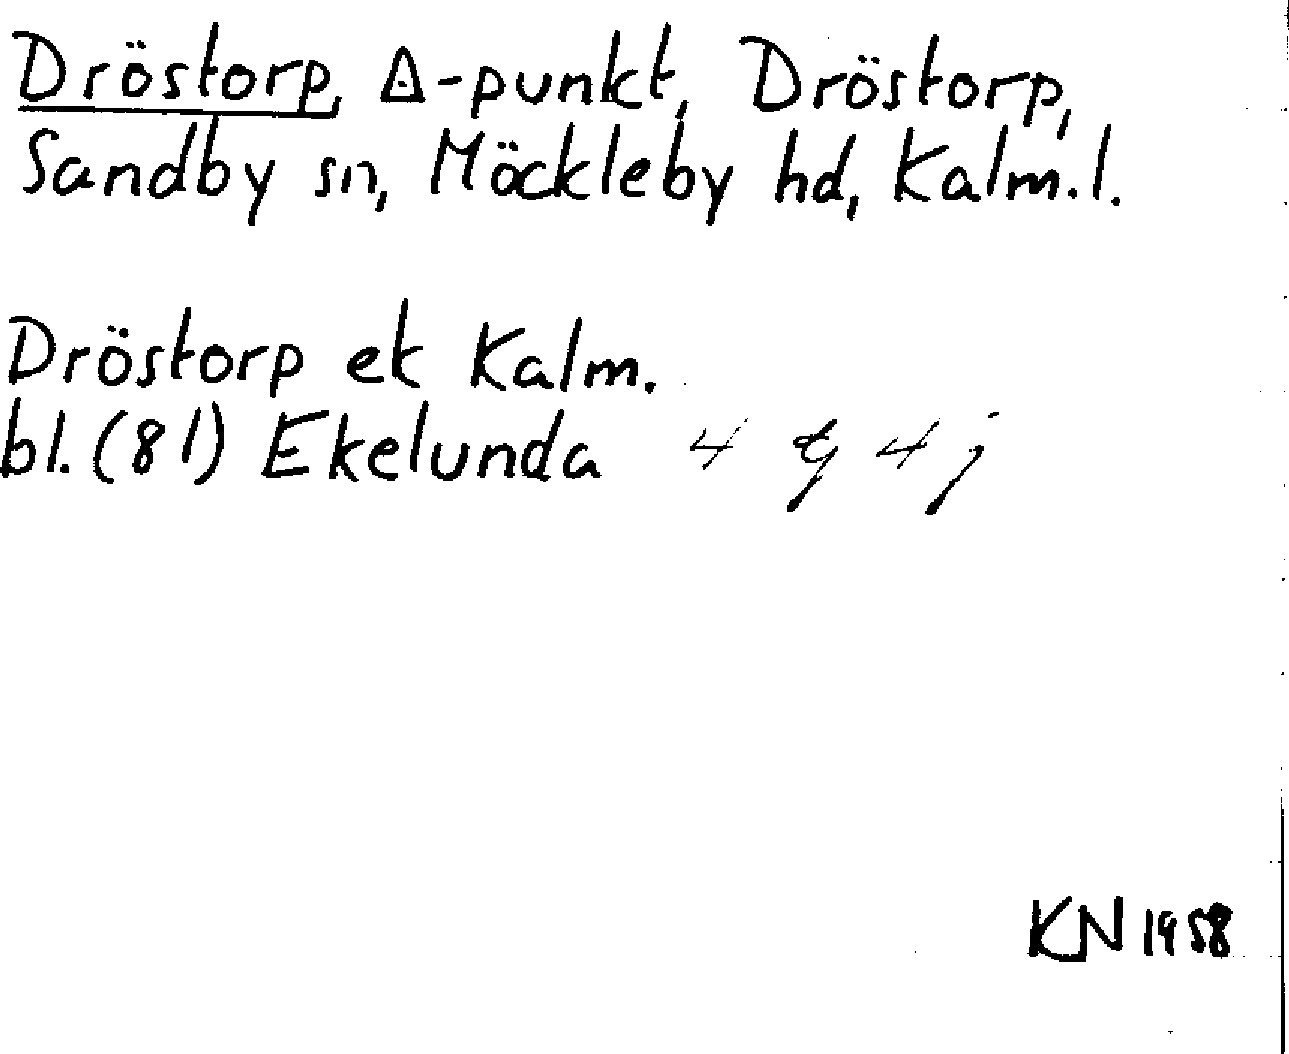 Dröstorp, ∆-punkt, Dröstorp,
Sandby sn, Möckleby hd, Kalm.l.
Dröstorp ek Kalm.
bl. (81) Ekelunda 4 g 4 j
KN 1958